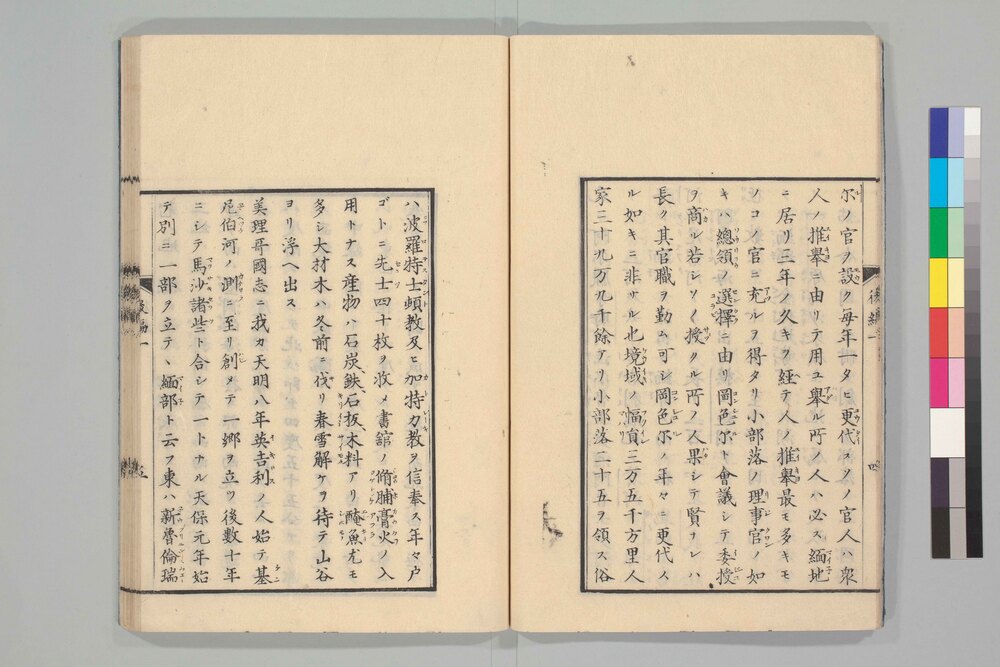 尓ノ官ヲ設ク每年一タヒ更代スソノ官人ハ衆
人ノ推舉ニ由リテ用ユ舉ル所ノ人ハ必ス緬地
ニ居リ三年ノ久キヲ經テ人ノ推舉最モ多キモ
ノコノ官ニ充ルヲ得タリ小部落ノ理事官ノ如
キハ總領ノ選擇ニ由リ岡色尓ト會議シテ委授
ヲ商ル若シソノ授クル所ノ人果シテ賢ナレハ
長ク其官職ヲ勤ム可シ岡色尓ノ年々ニ更代ス
ル如キニ非サル也境域ノ幅員三万五千方里人
家三十九万九千餘アリ小部落二十五ヲ領ス俗
後編一
四
ハ波羅特士頓教及ヒ加特力教ヲ信奉ス年々戸
ゴトニ先士四十枚ヲ收メ書舘ノ脩脯膏火ノ入
用トナス産物ハ石炭、鉄、石板、木料アリ醃魚尤モ
多シ大材木ハ冬前ニ伐リ春雪解ケヲ待テ山谷
ヨリ浮ヘ出ス
美理哥國志ニ我カ天明八年英吉利ノ人始テ基
尼伯河ノ測ニ至リ創メテ一鄉ヲ立ツ後數十年
ニシテ馬沙諸些ト合シテ一トナル天保元年始
テ別ニ一部ヲ立テ、緬部ト云フ東ハ新魯倫瑞
後編一
五